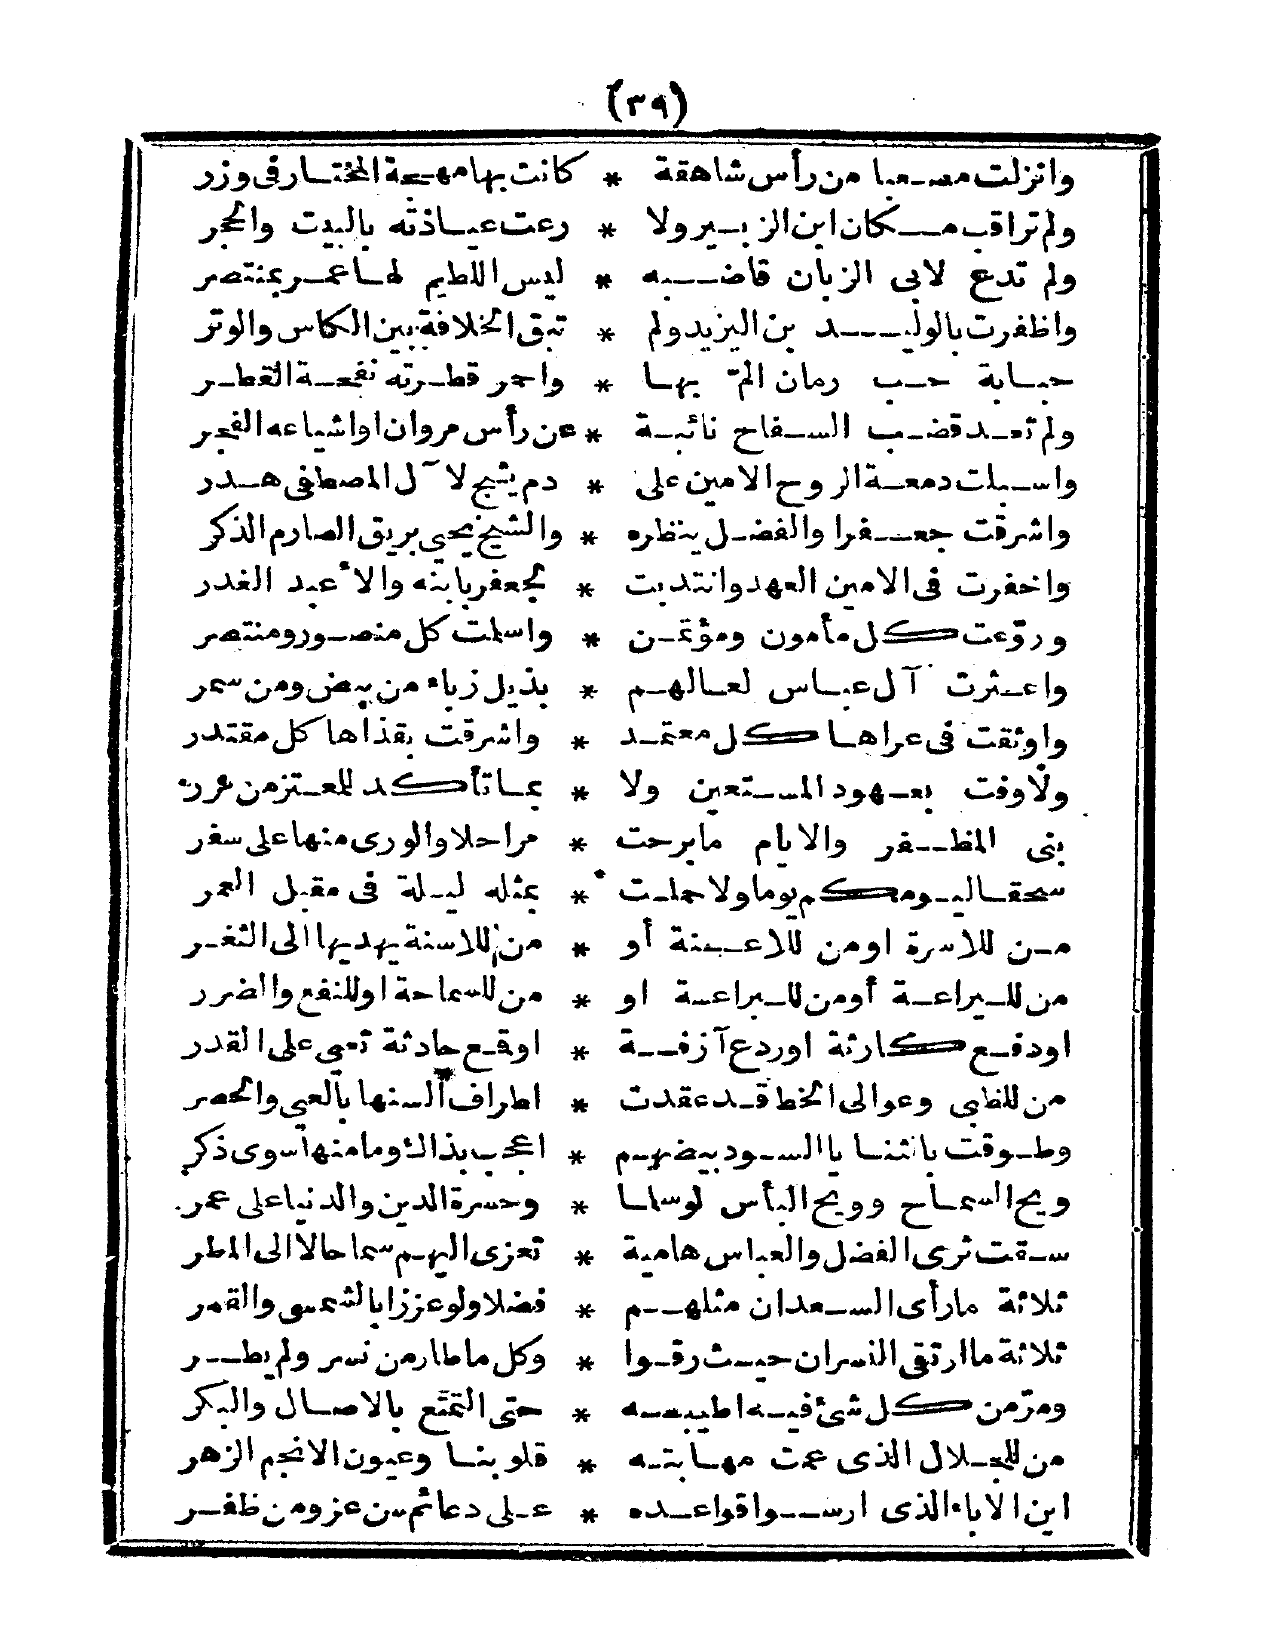 (٣٩)
وانزلت مصعبا من رأس شاهقة * كانت بها مهجة المختار فى وزر
ولم تراقب مكان ابن الزبير ولا * رعت عياذته بالبيت والحجر
ولم تدع لابى الزبان قاضبه * ليس اللطيم لها عمر بمنتصر
واظفرت بالوليد بن اليزيد ولم * تبق الخلافة بين الكاس والوتر
حبابة حب رمان الم بها * واحمر قطرته نفحة القطر
ولم تعد قضب السفاح نائبة * عن رأس مروان او اشياعه الفجر
واسبلت دمعة الروح الامين على * دم بثج لآل المصطفى هدر
واشرقت جعفرا والفضل ينظره * والشيخ يحيى بريق الصارم الذكر
واخفرت فى الامين العهد وانتدبت * لجعفر بابنه والاعبد الغدر
وروّعت كل مأمون ومؤتمن * واسلمت كل منصور ومنتصر
واعثرت آل عباس لعالهم * بذيل زباء من بيض ومن سمر
واوثقت فى عراها كل معتمد * واشرقت بقذاها كل مقتدر
ولا وفت بعهود المستعين ولا * بما تأكد للمعتز من مرر
بنى المظفر والايام ما برحت * مراحلا والورى منها على سفر
سحقا ليومكم يوما ولا حملت * بمثله ليلة فى مقبل العمر
من للاسرة او من للاعنة أو * من للاسنة يهديها الى الثغر
من لليراعة أو من للبراعة او * من للسماحة او للنفع والضرر
او دفع كارثة او ردع آزفة * او قمع حادثة تعيى على القدر
من للظبى وعوالى الخط قد عقدت * اطراف ألسنها بالعى والحصر
وطوقت بالثنا بالسود بيضهم * اعجب بذاك وما منها سوى ذكر
ويح السماح وويح البأس لو سلما * وحسرة الدين والدنيا على عمر
سقت ثرى الفضل والعباس هامية * تعزى اليهم سماحا لا الى المطر
ثلاثة ما رأى السعدان مثلهم * فضلا ولو عززا بالشمس والقمر
ثلاثة ما ارتقى النسران حيث رقوا * وكل ما طار من نسر ولم يطر
ومر من كل شئ فيه اطيبه * حتى التمتع بالاصال والبكر
من للجلال الذى عمت مهابته * قلوبنا وعيون الانجم الزهر
اين الاباء الذى ارسوا قواعده * على دعائم من عز ومن ظفر